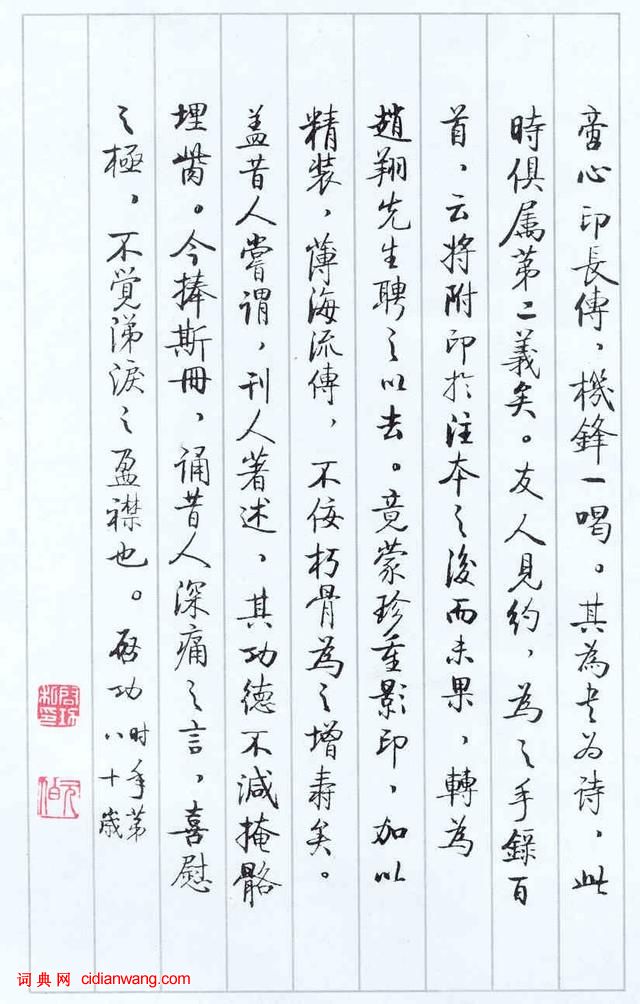 童心印長傳，機鋒一喝。其為書為诗，此
時俱属第二義矣。友人見約，為之手錄百
首，云将附印於注本之後而未果，轉為
趙翔先生聘之以去。竟蒙珍重影印，加以
精装，薄海流傳，不佞朽骨為之增壽矣。
盖昔人嘗谓，刊人著述，其功德不減掩骼
埋胔。今捧斯冊，诵昔人深痛之言，喜慰
之極，不覚涕淚之盈襟也。啓功
时年第
八十歲
启功
私印
元伯
词典网 cidianwang.com